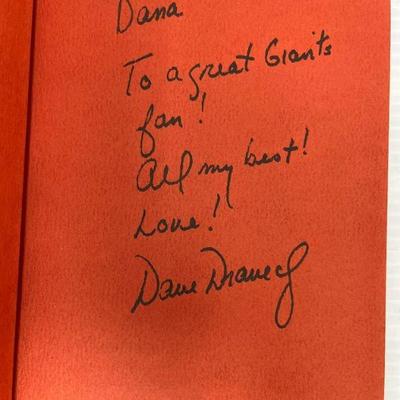 Dana
To a great Giants
fan!
All my best!
Love!
Dave Dravecky